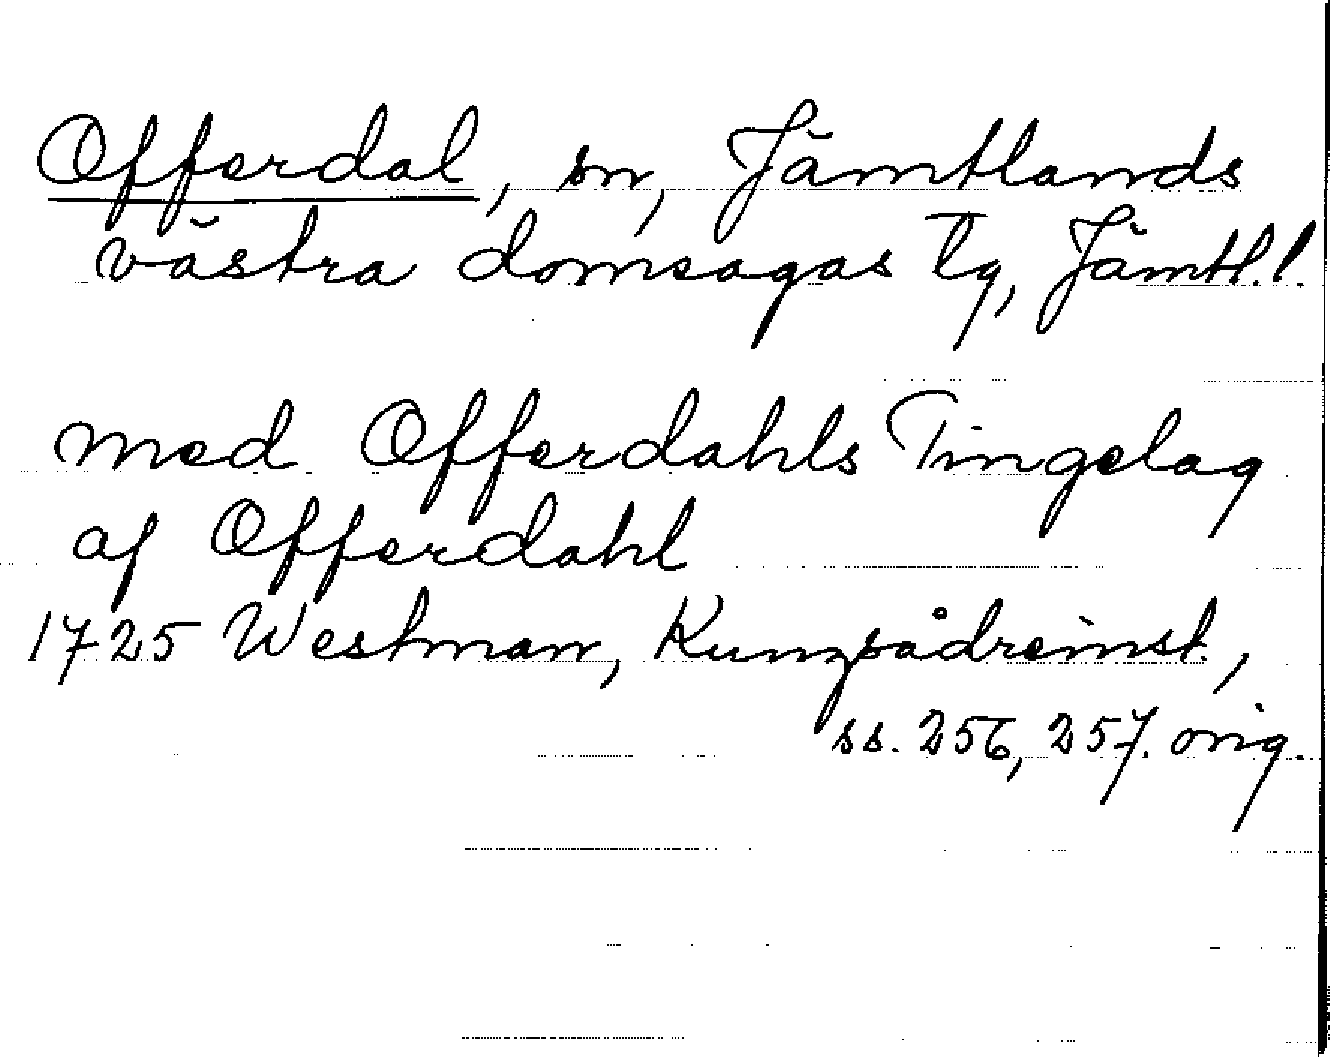 Offerdal, sn, Jämtlands
västra domsagas tg, Jämtl.l.
med Offerdahls Tingelag
af Offerdahl
1725 Westman, Kunzsådreinst.,
ss. 256, 257. orig.